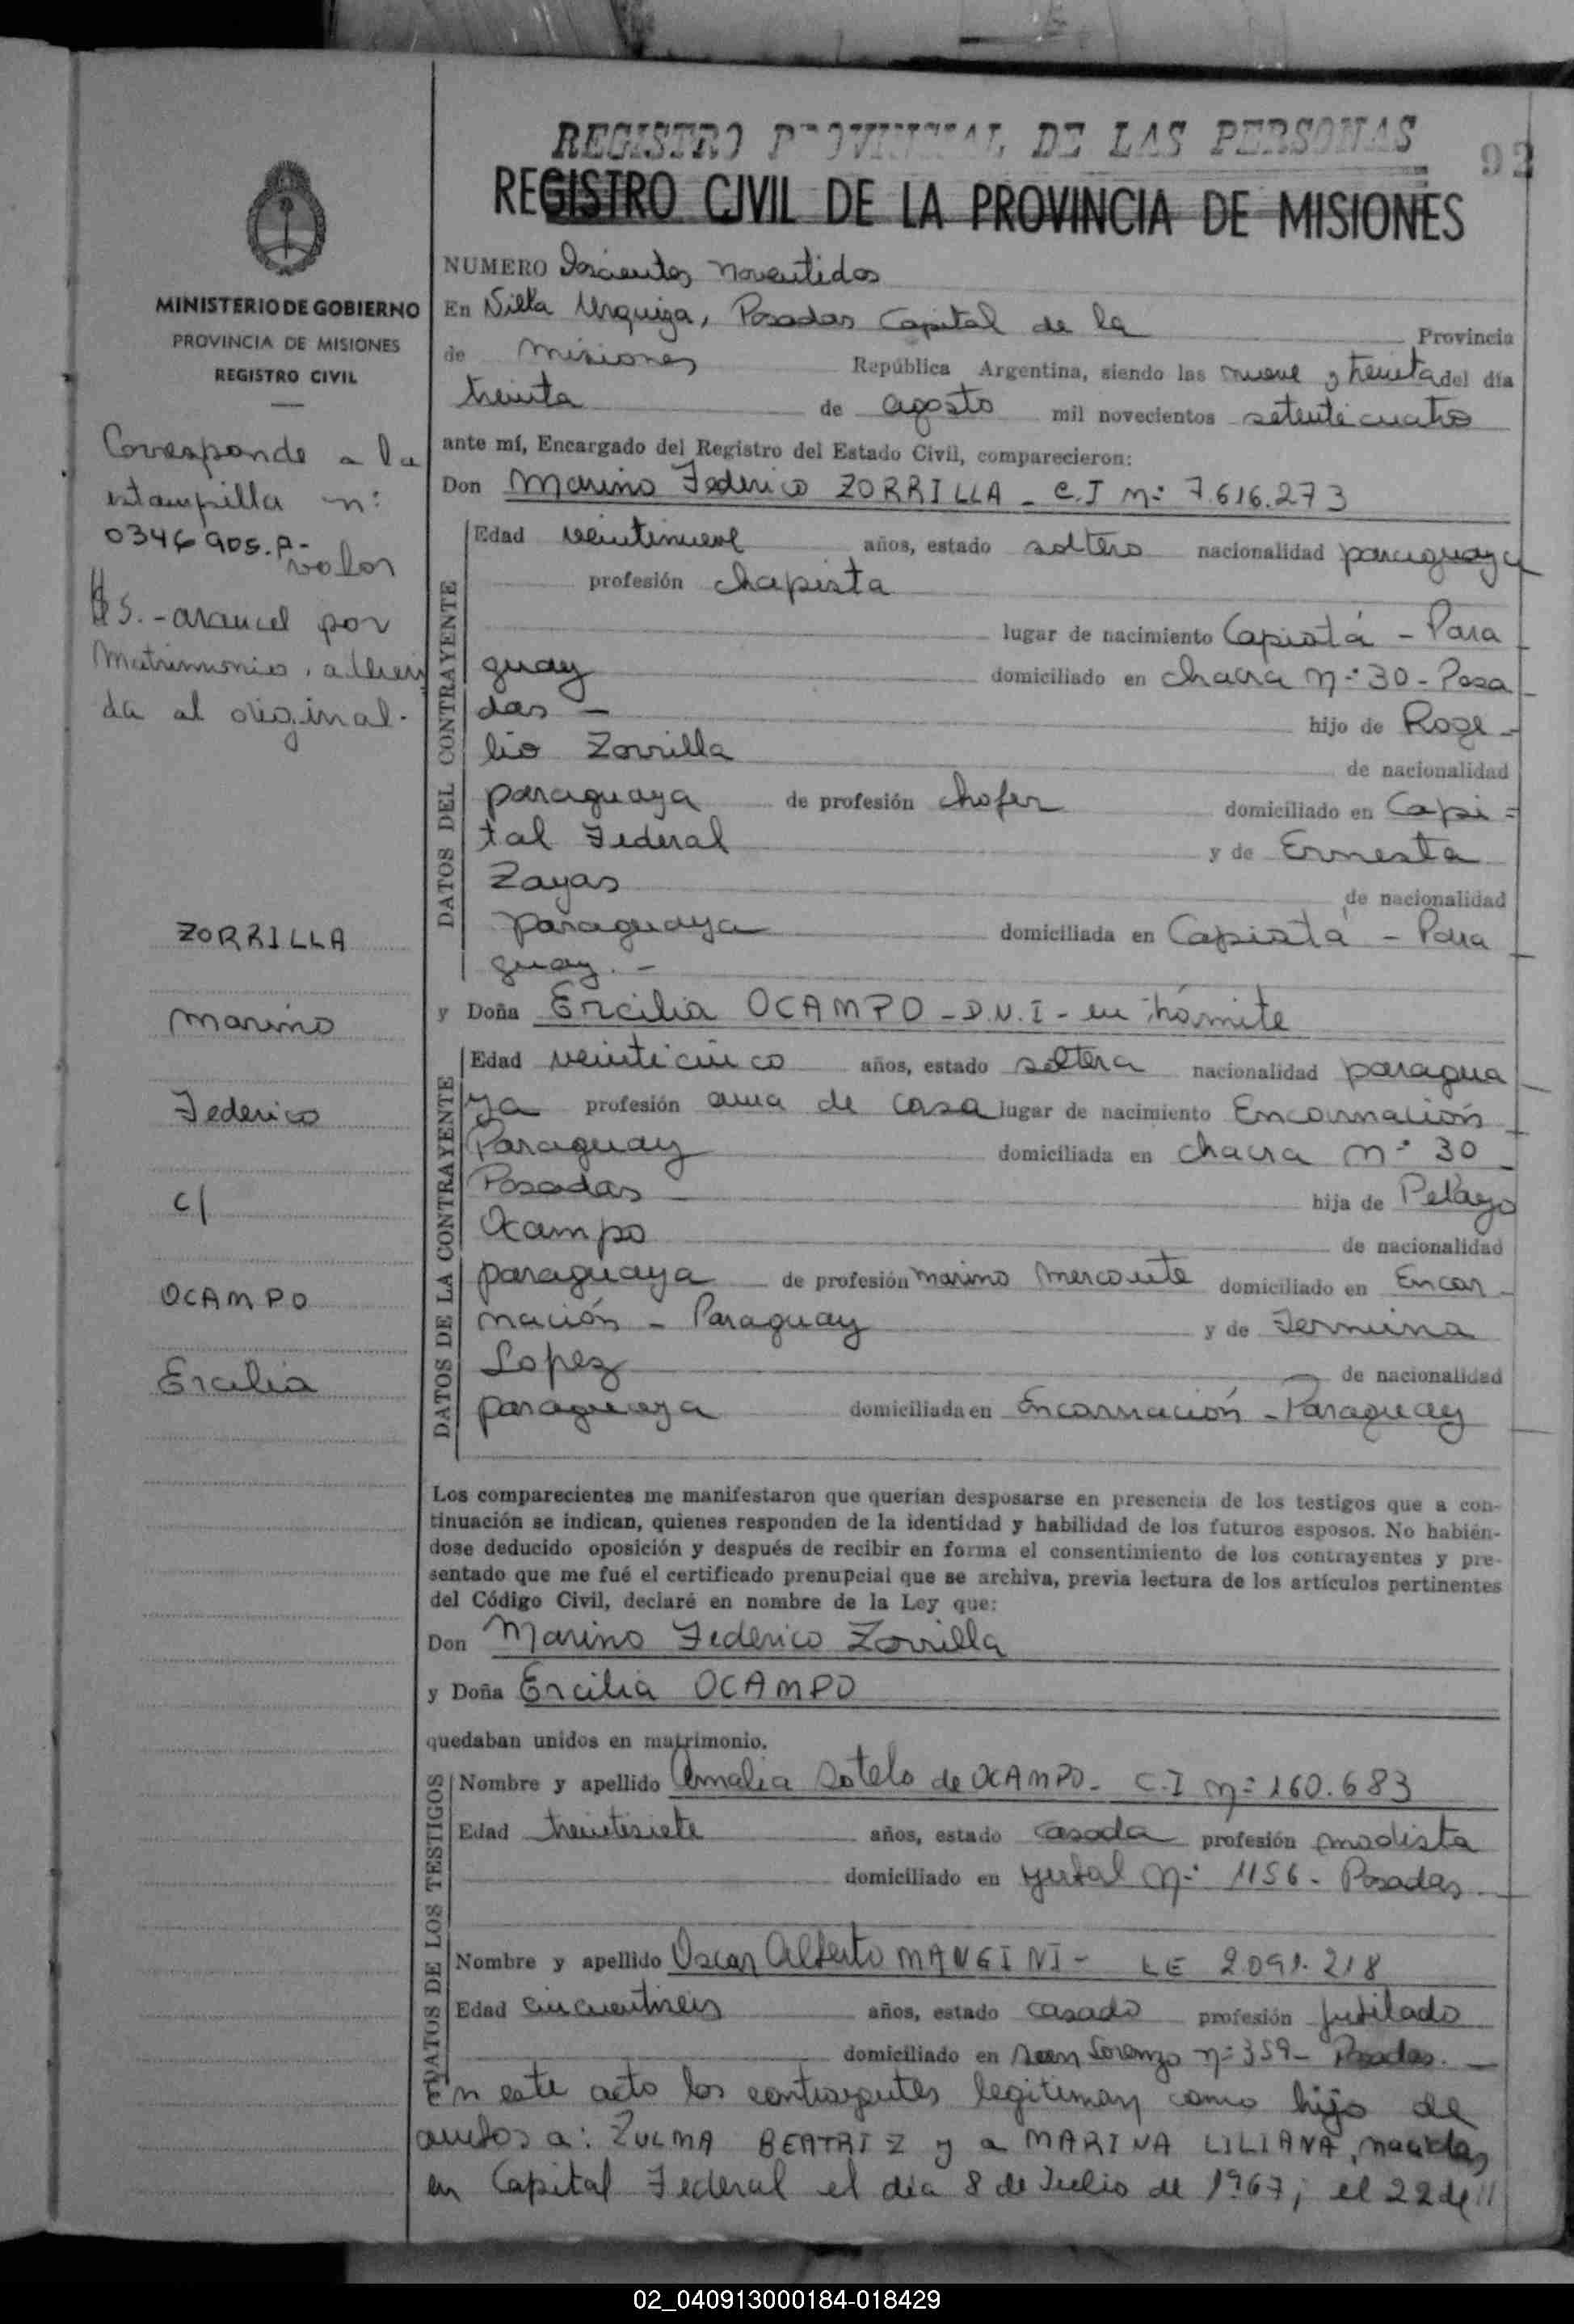 REGISTRO PROVINCIAL DE LAS PERSONAS
92
REGISTRO CIVIL DE LA PROVINCIA DE MISIONES
MINISTERIO DE GOBIERNO
PROVINCIA DE MISIONES
REGISTRO CIVIL
Corresponde a la
estampilla n:
0346905.A-
valor
$5.-arancel por
Matrimonio, adheri
da al original.
ZORRILLA
Marino
Federico
c/
OCAMPO
Ercilia
NUMERO Doscientos noventidos
En Villa Urquiza, Posadas Capital de la Provincia
de Misiones República Argentina, siendo las nueve y treinta del día
treinta de agosto mil novecientos setenticuatro
ante mí, Encargado del Registro del Estado Civil, comparecieron:
Don Marino Federico ZORRILLA - C.I Nº 7.616.273
DATOS DEL CONTRAYENTE
Edad veintinueve años, estado soltero nacionalidad paraguaya
profesión chapista
lugar de nacimiento Capiatá - Para
guay domiciliado en chacra Nº 30 - Posa
das - hijo de Roge-
lio Zorrilla de nacionalidad
paraguaya de profesión chofer domiciliado en Capi=
tal Federal y de Ernesta
Zayas de nacionalidad
paraguaya domiciliada en Capiatá - Para
guay.-
y Doña Ercilia OCAMPO - D.N.I - en trámite
DATOS DE LA CONTRAYENTE
Edad veinticinco años, estado soltera nacionalidad paragua
ya profesión ama de casa lugar de nacimiento Encarnación
Paraguay domiciliada en chacra Nº 30
Posadas hija de Pelayo
Ocampo de nacionalidad
paraguaya de profesión marino mercante domiciliado en Encar-
nación - Paraguay y de Fermina
Lopez de nacionalidad
paraguaya domiciliada en Encarnación - Paraguay
Los comparecientes me manifestaron que querían desposarse en presencia de los testigos que a con-
tinuación se indican, quienes responden de la identidad y habilidad de los futuros esposos. No habién-
dose deducido oposición y después de recibir en forma el consentimiento de los contrayentes y pre-
sentado que me fué el certificado prenupcial que se archiva, previa lectura de los artículos pertinentes
del Código Civil, declaré en nombre de la Ley que:
Don Marino Federico Zorrilla
y Doña Ercilia OCAMPO
quedaban unidos en matrimonio.
DATOS DE LOS TESTIGOS
Nombre y apellido Amalia Sotelo de OCAMPO - C.I Nº 160.683
Edad treintisiete años, estado casada profesión modista
domiciliado en Yerbal Nº 1156 - Posadas -
Nombre y apellido Oscar Alberto MANGINI - LE 2.091.218
Edad cincuentiseis años, estado casado profesión jubilado
domiciliado en San Lorenzo Nº 359 - Posadas. -
En este acto los contrayentes legitiman como hijo de
ambos a: ZULMA BEATRIZ y a MARINA LILIANA, nacidas
en Capital Federal el día 8 de Julio de 1967; el 22 de //
02_040913000184-018429